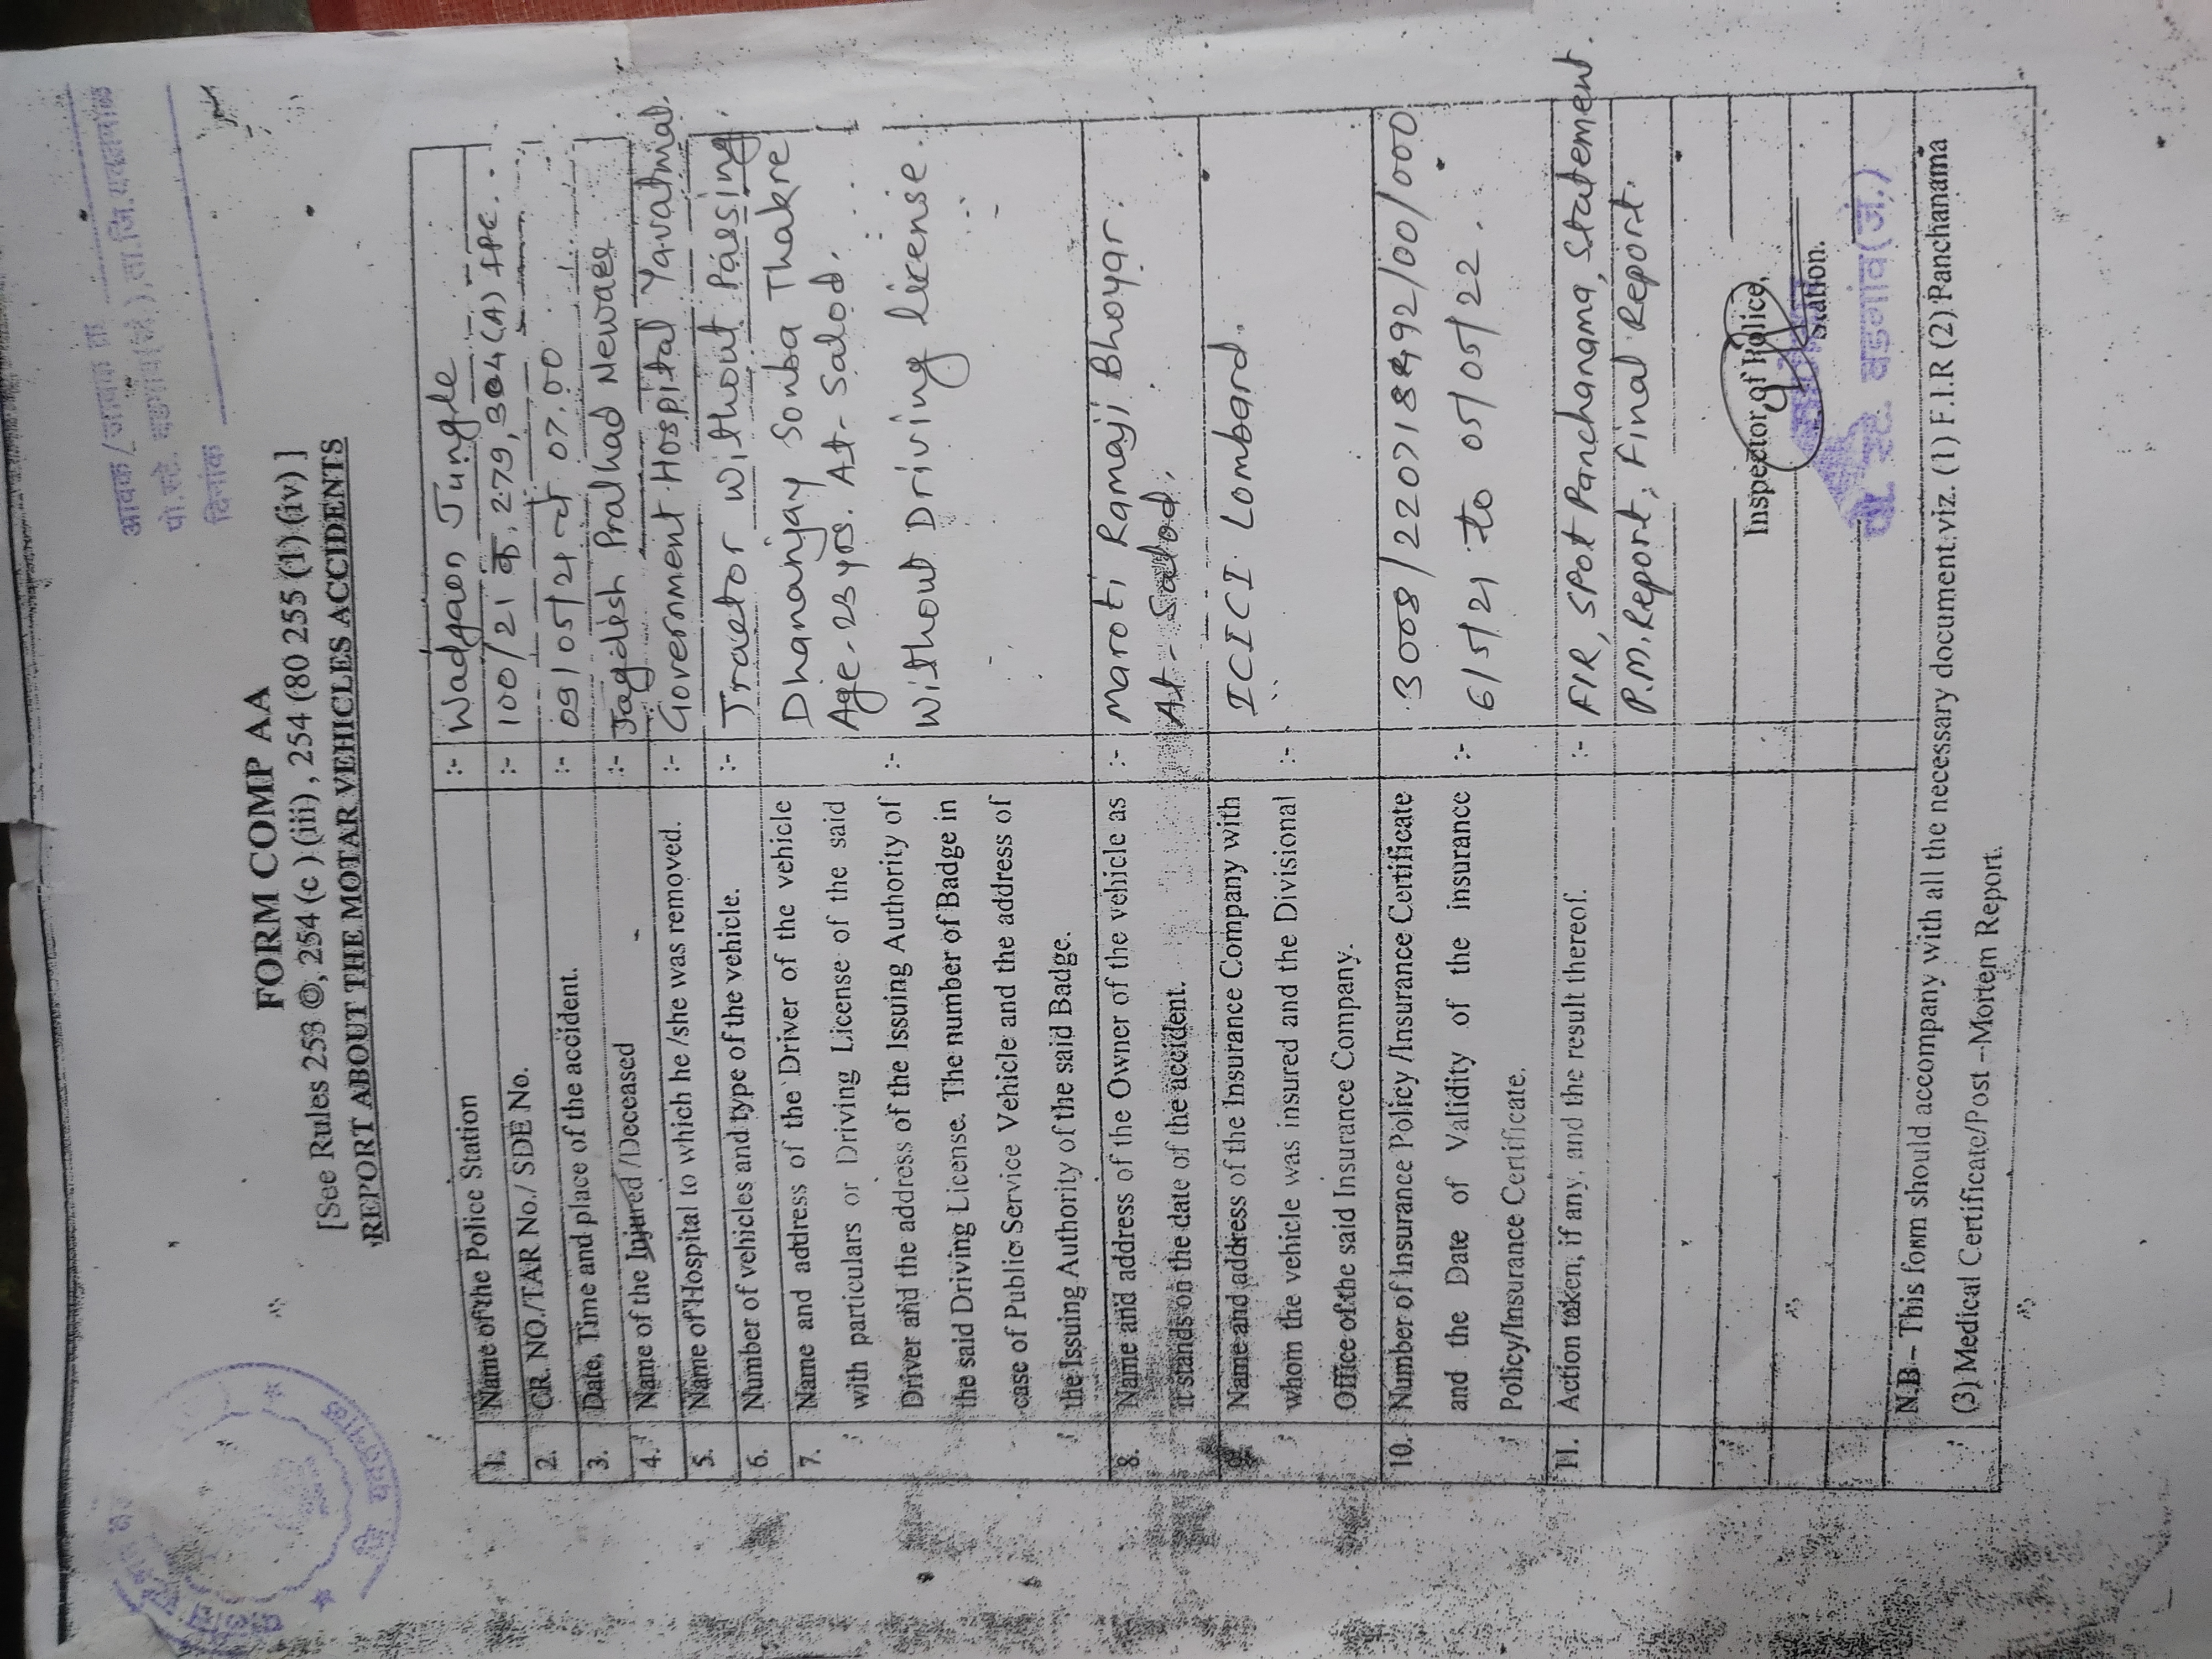 आवक/जावक क्र
पो.स्टे. वडगाव(जं), ता.जि.यवतमाळ
दिनांक
FORM COMP AA
[See Rules 253 ©, 254 (c) (iii), 254 (80 255 (1) (iv) ]
REPORT ABOUT THE MOTAR VEHICLES ACCIDENTS
1. Name of the Police Station :- Wadgaon Jungle
2. CR. NO./TAR No./ SDE No. :- 100/21 क. 279, 304(A) IPC.
3. Date, Time and place of the accident. :- 09/05/21 चे 07.00
4. Name of the Injured /Deceased :- Jagdish Pralhad Neware
5. Name of Hospital to which he /she was removed. :- Government Hospital Yavatmal.
6. Number of vehicles and type of the vehicle. :- Tractor Without Passing.
7. Name and address of the Driver of the vehicle Dhananjay Sonba Thakre
with particulars or Driving License of the said Age-23 yrs. At- Salod.
Driver and the address of the Issuing Authority of :- Without Driving license.
the said Driving License. The number of Badge in
case of Public Service Vehicle and the address of
the Issuing Authority of the said Badge.
8. Name and address of the Owner of the vehicle as :- Maroti Ramaji Bhoyar.
it stands on the date of the accident. At- Salod.
9. Name and address of the Insurance Company with
whom the vehicle was insured and the Divisional :- ICICI Lombard.
Office of the said Insurance Company.
10. Number of Insurance Policy /Insurance Certificate 3008/220718492/00/000
and the Date of Validity of the insurance :- 6/5/21 to 05/05/22.
Policy/Insurance Certificate.
11. Action taken, if any, and the result thereof. :- FIR, Spot Panchanama, Statement.
P.M. Report, Final Report.
Inspector of Police,
Station.
पो. स्टे. वडगांव(जं.)
N.B – This form should accompany with all the necessary document viz. (1) F.I.R (2) Panchanama
(3) Medical Certificate/Post –Mortem Report.